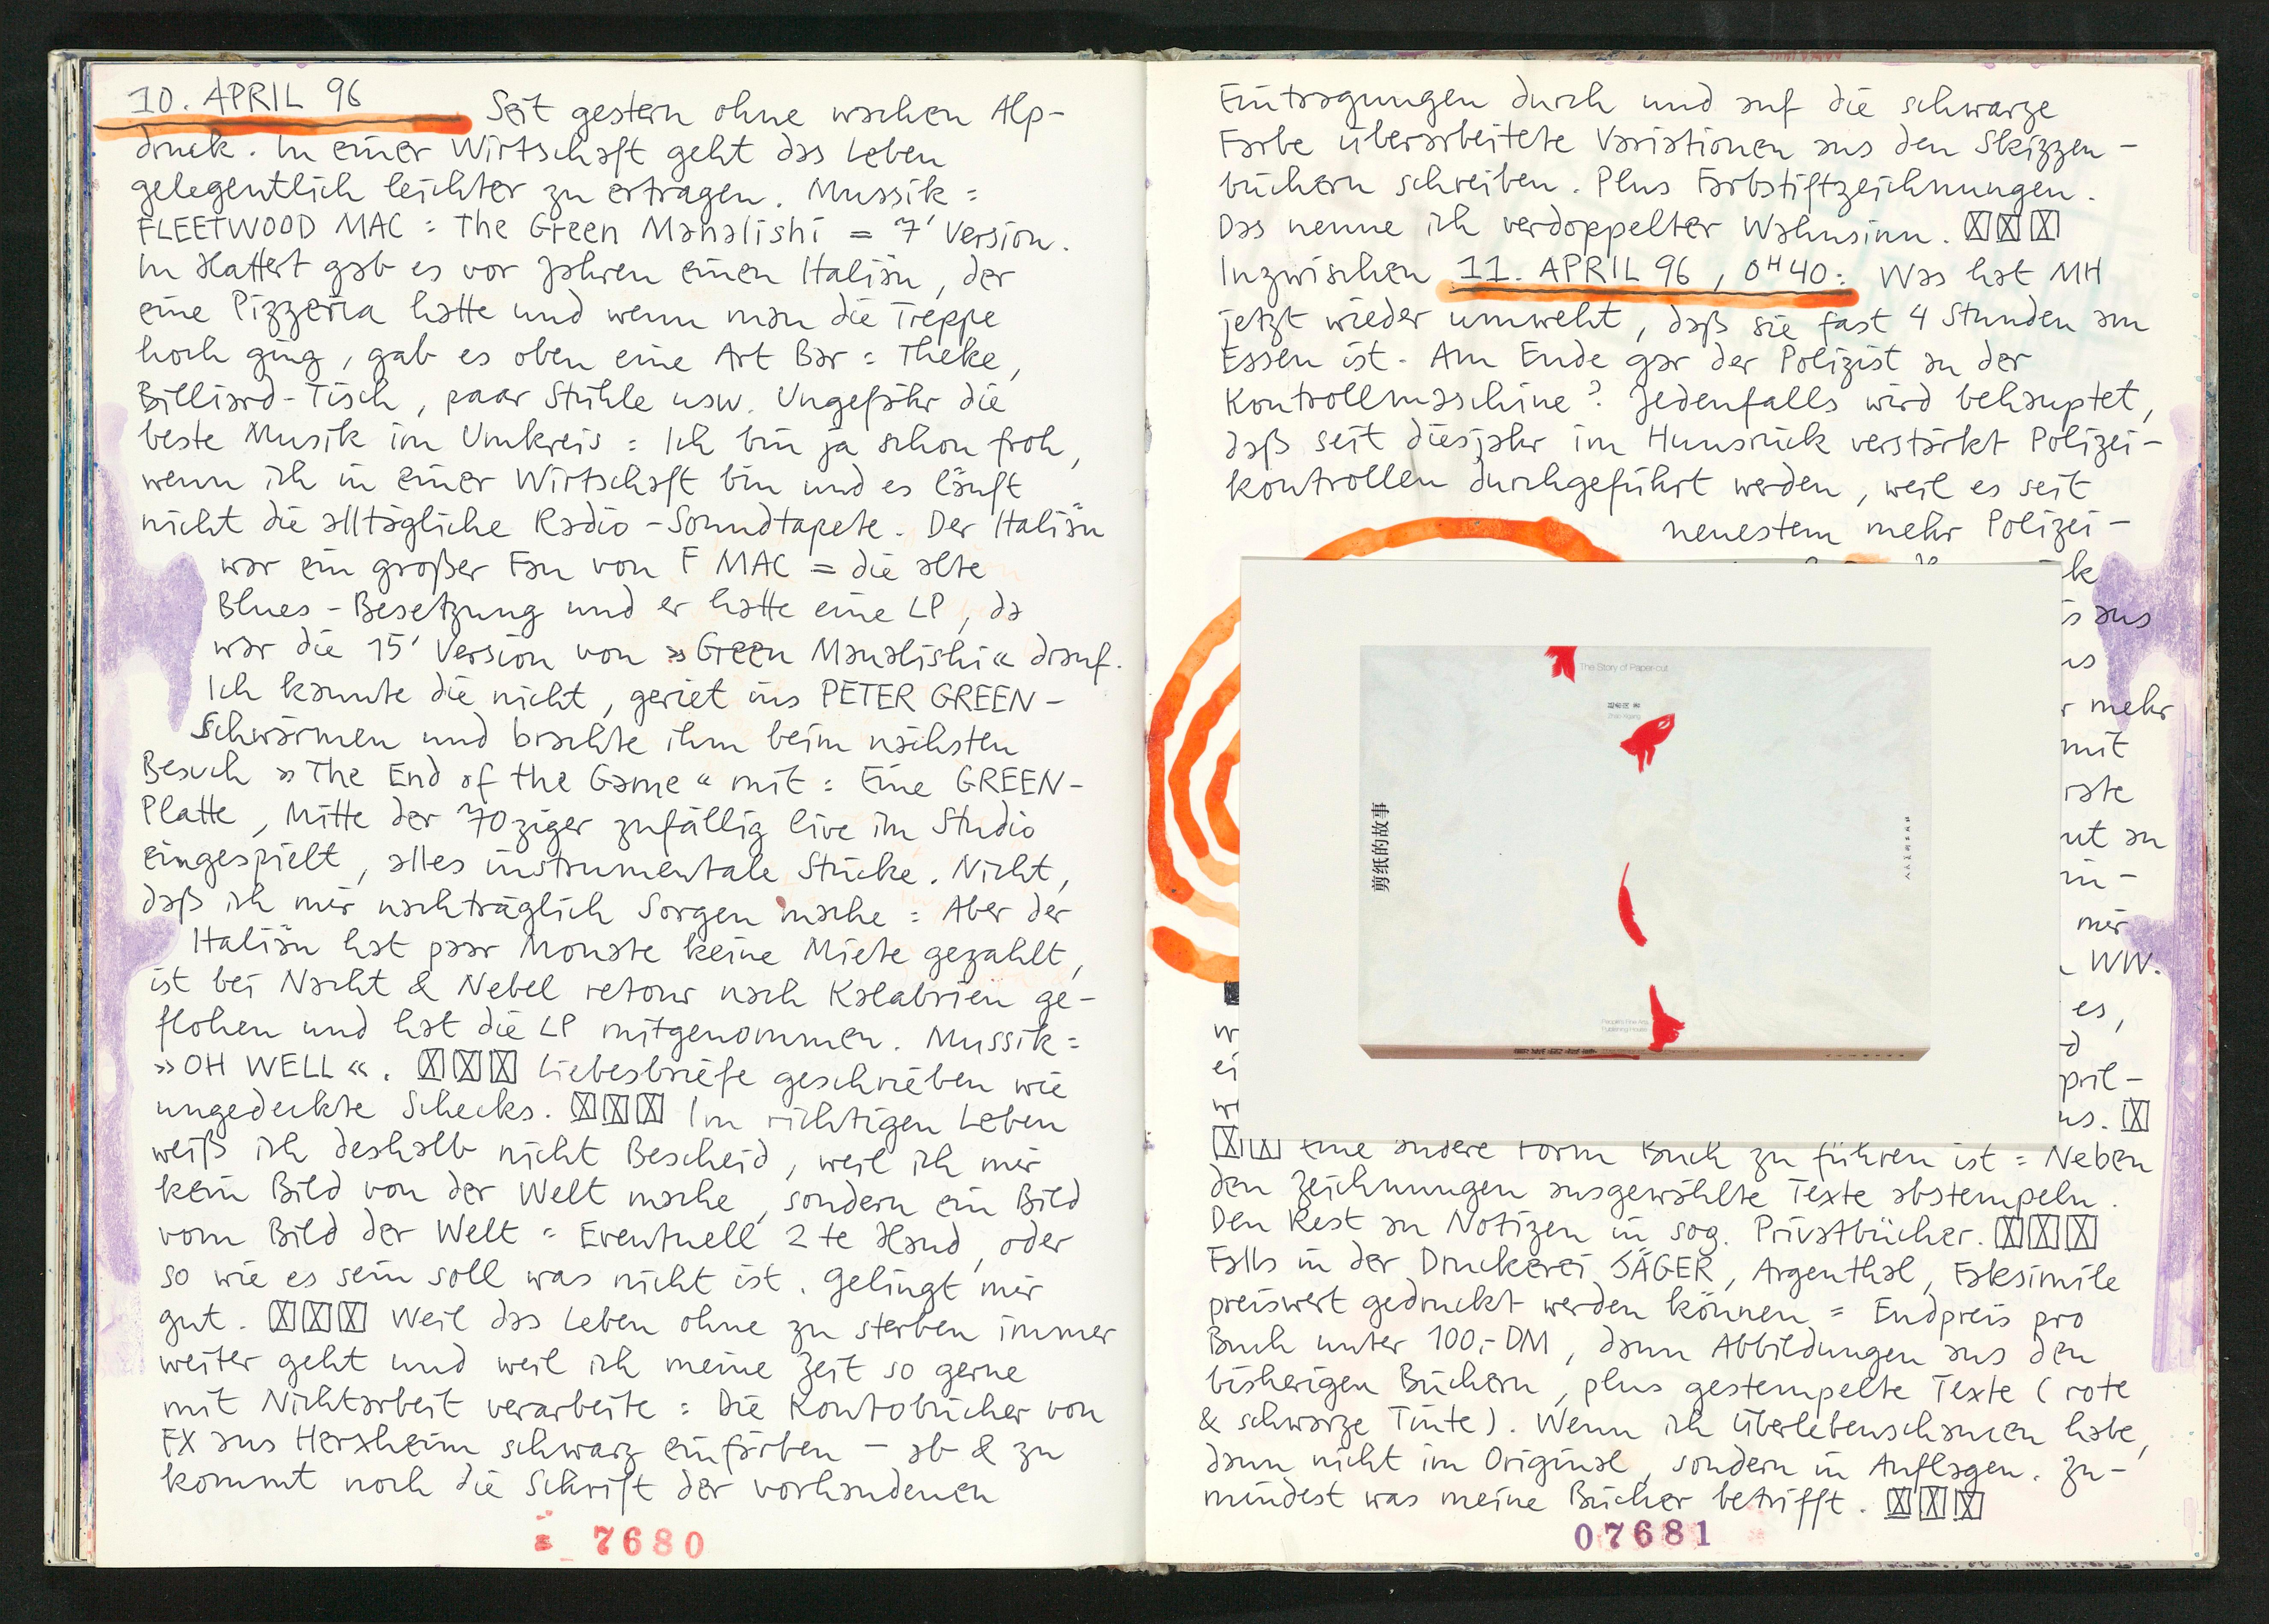 10. APRIL 96 Seit gestern ohne wachen Alp-
druck. In einer Wirtschaft geht das Leben
gelegentlich leichter zu ertragen. Mussik =
FLEETWOOD MAC : The Green Manalishi = 7' Version.
In Hattert gab es vor Jahren einen Italiän, der
eine Pizzeria hatte und wenn man die Treppe
hoch ging, gab es oben eine Art Bar = Theke,
Billiard-Tisch, paar Stühle usw. Ungefähr die
beste Musik im Umkreis = Ich bin ja schon froh,
wenn ich in einer Wirtschaft bin und es läuft
nicht die alltägliche Radio-Soundtapete. Der Italiän
war ein großer Fan von F MAC = die alte
Blues-Besetzung und er hatte eine LP, da
war die 15' Version von »Green Manalishi« drauf.
Ich kannte die nicht, geriet ins PETER GREEN-
Schwärmen und brachte ihm beim nächsten
Besuch »The End of the Game« mit = Eine GREEN-
Platte, Mitte der 70ziger zufällig live im Studio
eingespielt, alles instrumentale Stücke. Nicht,
daß ich mir nachträglich Sorgen mache = Aber der
Italiän hat paar Monate keine Miete gezahlt,
ist bei Nacht & Nebel retour nach Kalabrien ge-
flohen und hat die LP mitgenommen. Mussik =
»OH WELL«. Liebesbriefe geschrieben wie
ungedeckte Schecks. Im richtigen Leben
weiß ich deshalb nicht Bescheid, weil ich mir
kein Bild von der Welt mache, sondern ein Bild
vom Bild der Welt = Eventuell 2te Hand, oder
so wie es sein soll was nicht ist. Gelingt mir
gut. Weil das Leben ohne zu sterben immer
weiter geht und weil ich meine Zeit so gerne
mit Nichtarbeit verarbeite = Die Kontobücher von
FX aus Herxheim schwarz einfärben - ab & zu
kommt noch die Schrift der vorhandenen
7680
Eintragungen durch und auf die schwarze
Farbe überarbeitete Variationen aus den Skizzen-
büchern schreiben. Plus Farbstiftzeichnungen.
Das nenne ich verdoppelter Wahnsinn.
Inzwischen 11. APRIL 96, 0H40: Was hat MH
jetzt wieder umweht, daß sie fast 4 Stunden am
Essen ist. Am Ende gar der Polizist an der
Kontrollmaschine? Jedenfalls wird behauptet,
daß seit diesjahr im Hunsrück verstärkt Polizei-
kontrollen durchgeführt werden, weil es seit
neuestem mehr Polizei-
aus
mehr
mit
mir
WW.
es,
The Story of Paper-cut
Zhao Xigang
剪纸的故事
人民美术出版社
People's Fine Arts
Publishing House
Eine andere Form Buch zu führen ist = Neben
den Zeichnungen ausgewählte Texte abstempeln.
Den Rest an Notizen in sog. Privatbücher.
Falls in der Druckerei SÄGER, Argenthal, Faksimile
preiswert gedruckt werden können = Endpreis pro
Buch unter 100,- DM, dann Abbildungen aus den
bisherigen Büchern, plus gestempelte Texte (rote
& schwarze Tinte). Wenn ich Überlebenschancen habe,
dann nicht im Original, sondern in Auflagen. Zu-
mindest was meine Bücher betrifft.
07681